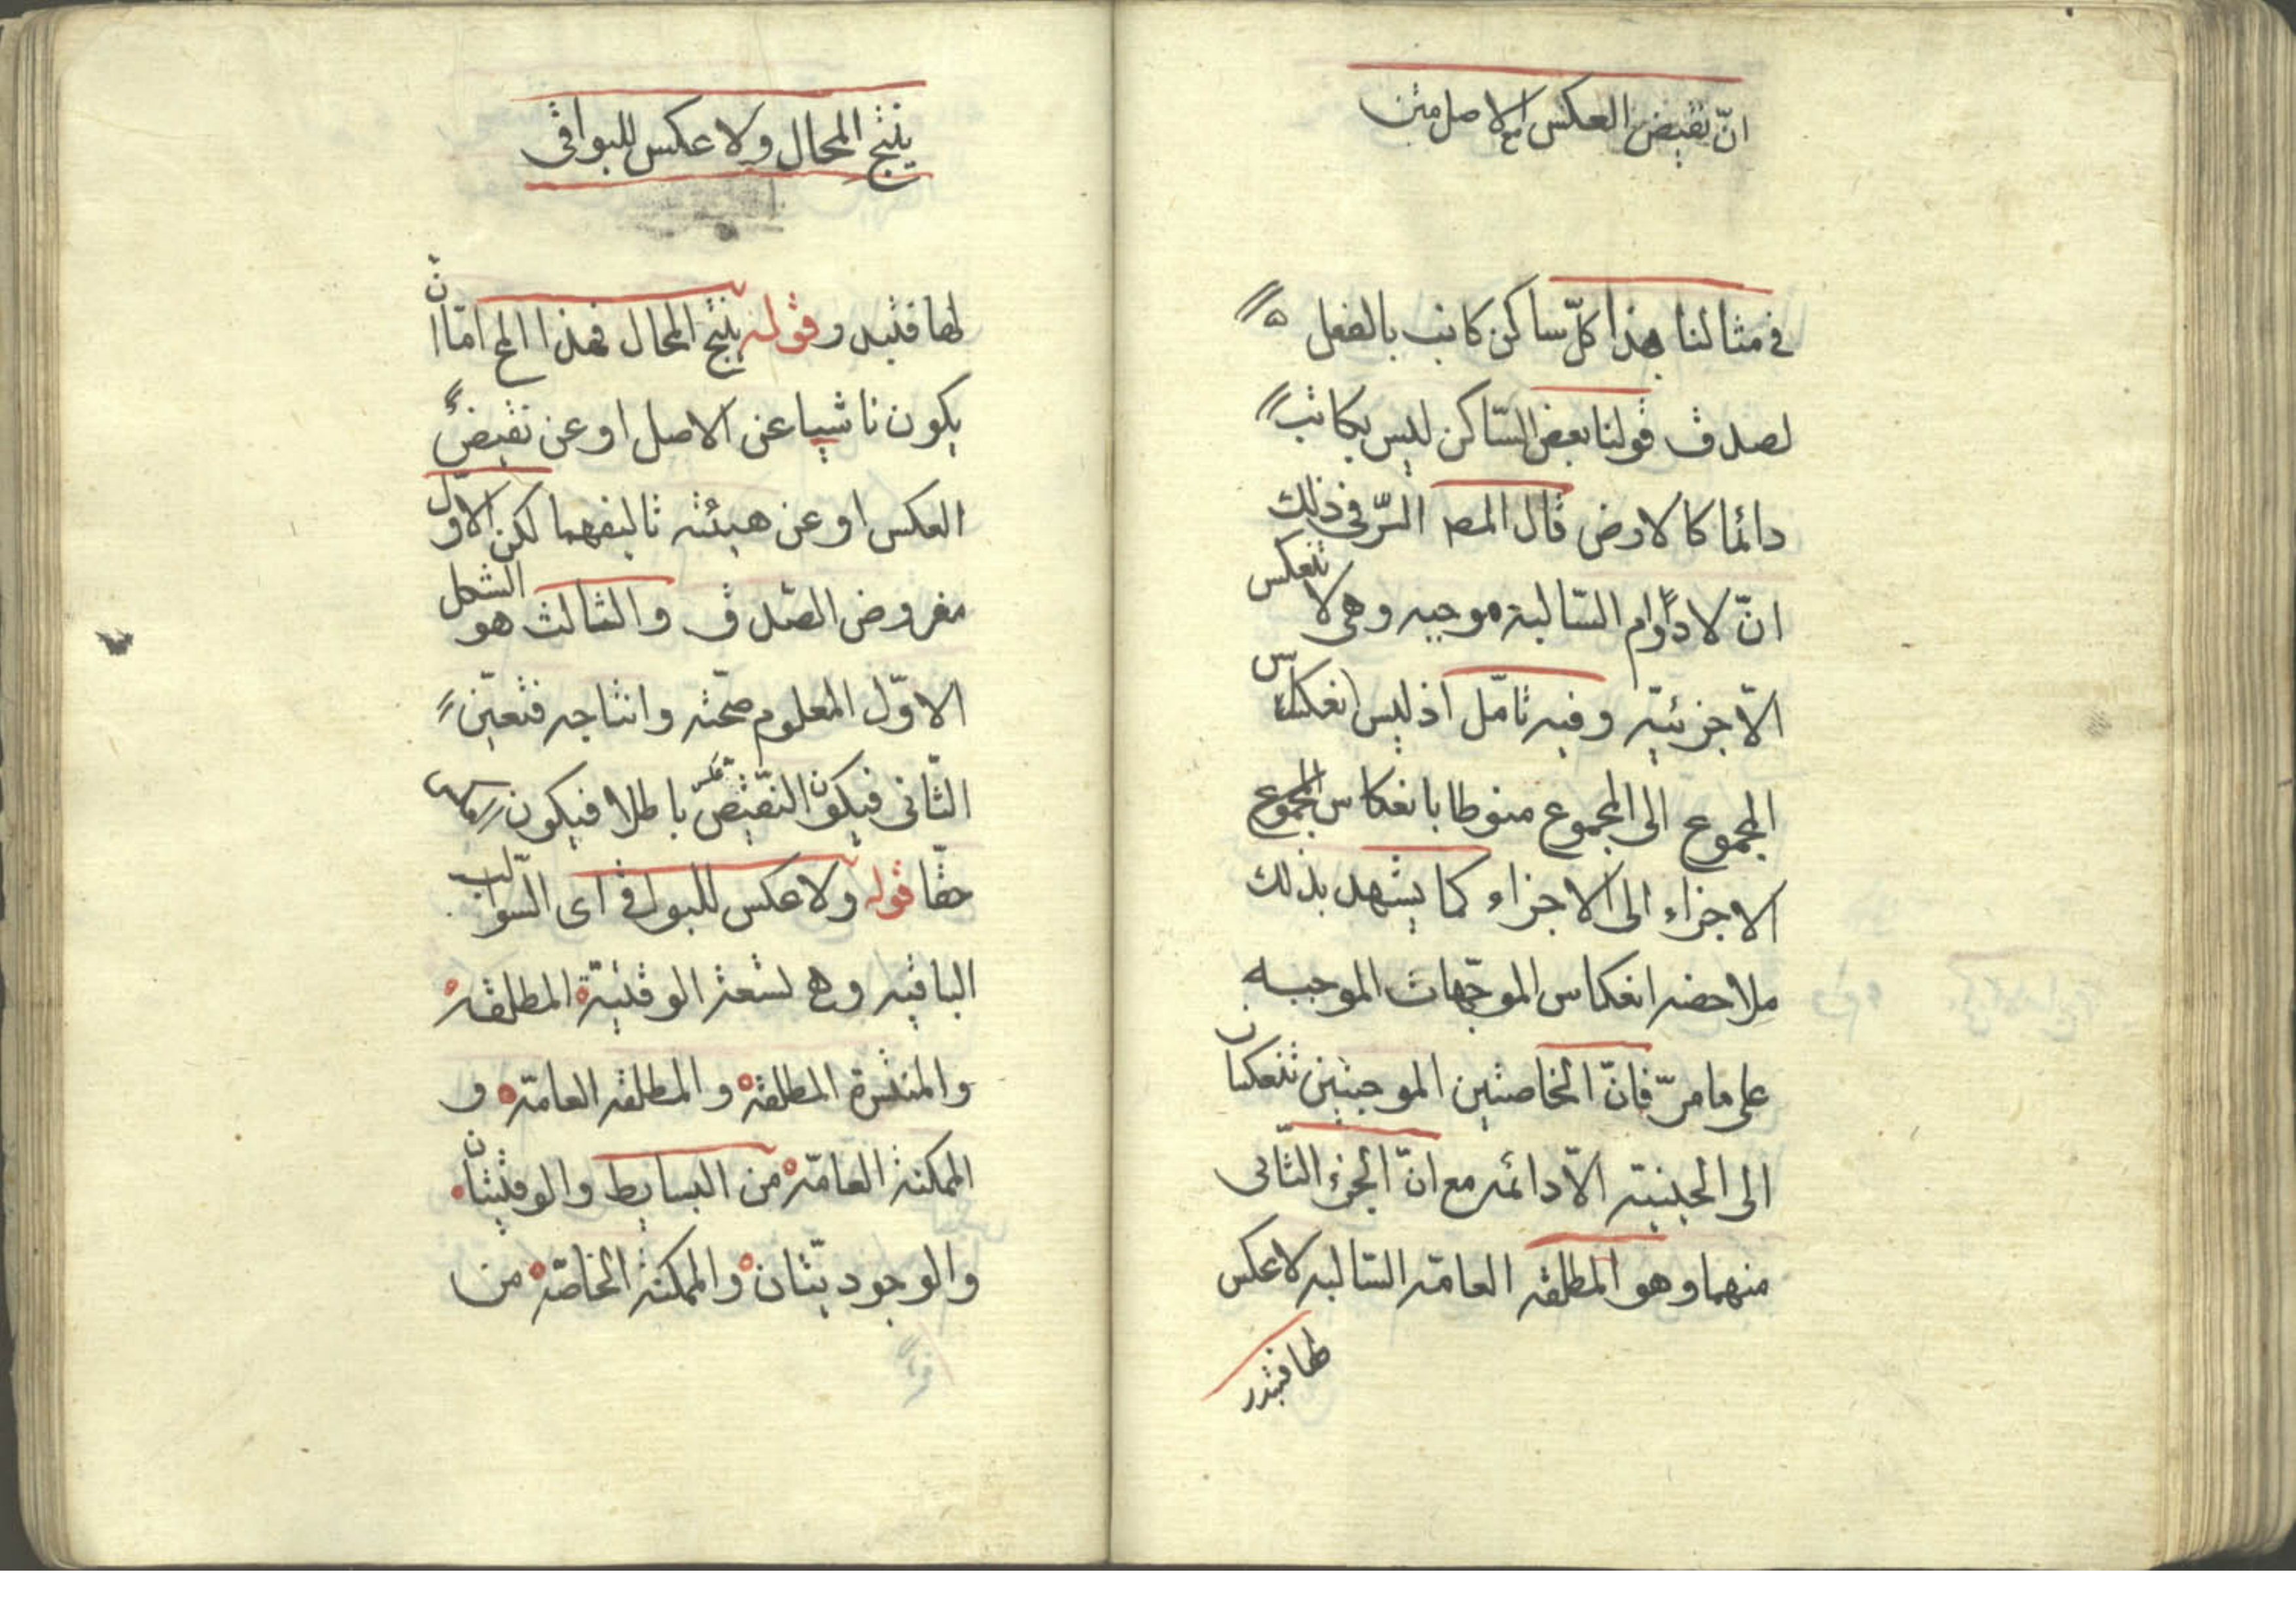 انّ نقيض العكس مع الاصل متن
في مثالنا هذا كلّ ساكن كاتب بالفعل
لصدق قولنا بعض السّاكن ليس بكاتب
دائما كالارض قال المصـ السّر في ذلك
انّ لادوام السّالبة موجبه وهى لا تنعكس
الاّ جزئيّه وفيه تامّل اذ ليس انعكاس
المجموع الى المجموع منوطا بانعكاس المجموع
الاجزاء الى الاجزاء كما يشهد بذلك
ملاحضه انعكاس الموجّهات الموجبه
على ما مرّ فانّ الخاصتين الموجبتين تنعكسان
الى الحينيّه الاّدائمه مع انّ الجزء الثّانى
منهما وهو المطلقه العامّه السّالبه لا عكس
لها فتدبر
ينتج المحال ولا عكس للبواقى
لها فتبدر قوله ينتج المحال فهذا المح امّا ان
يكون ناشيا عن الاصل او عن نقيض
العكس او عن هيئته تاليفهما لكن الاوّل
مفروض الصّدق والثالث هو الشكل
الاوّل المعلوم صحّته وانتاجه فتعيّن
الثّانى فيكون النّقيض باطلا فيكون
حقّا قوله ولا عكس للبواقى اى السّوالب
الباقيه وهى تسعة الوقتيّة المطلقه
والمنتشرة المطلقه والمطلقه العامّه و
الممكنه العامّه من البسايط والوقتيتان
والوجوديّتان والممكنة الخاصّه من